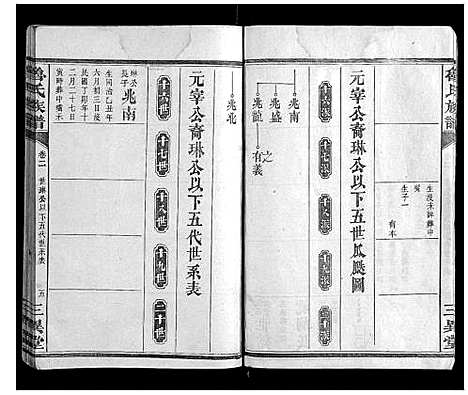 魯氏族譜
三異堂
生沒未詳葬中
生子一
有本
元宰公裔琳公以下五世瓜瓞圖
十六世
十七世
十八世
十九世
二十世
兆南
兆盛
兆龍
之
有義
兆北
元宰公裔琳公以下五代世系表
十六世
十七世
十八世
十九世
二十世
琳公
長子
兆南
生同治乙丑年
六月初三日歿
民國丁卯年十
二月二十七日
寅時葬中橋禾
魯氏族譜
卷二
世琳公以下五代世系表
五
三異堂